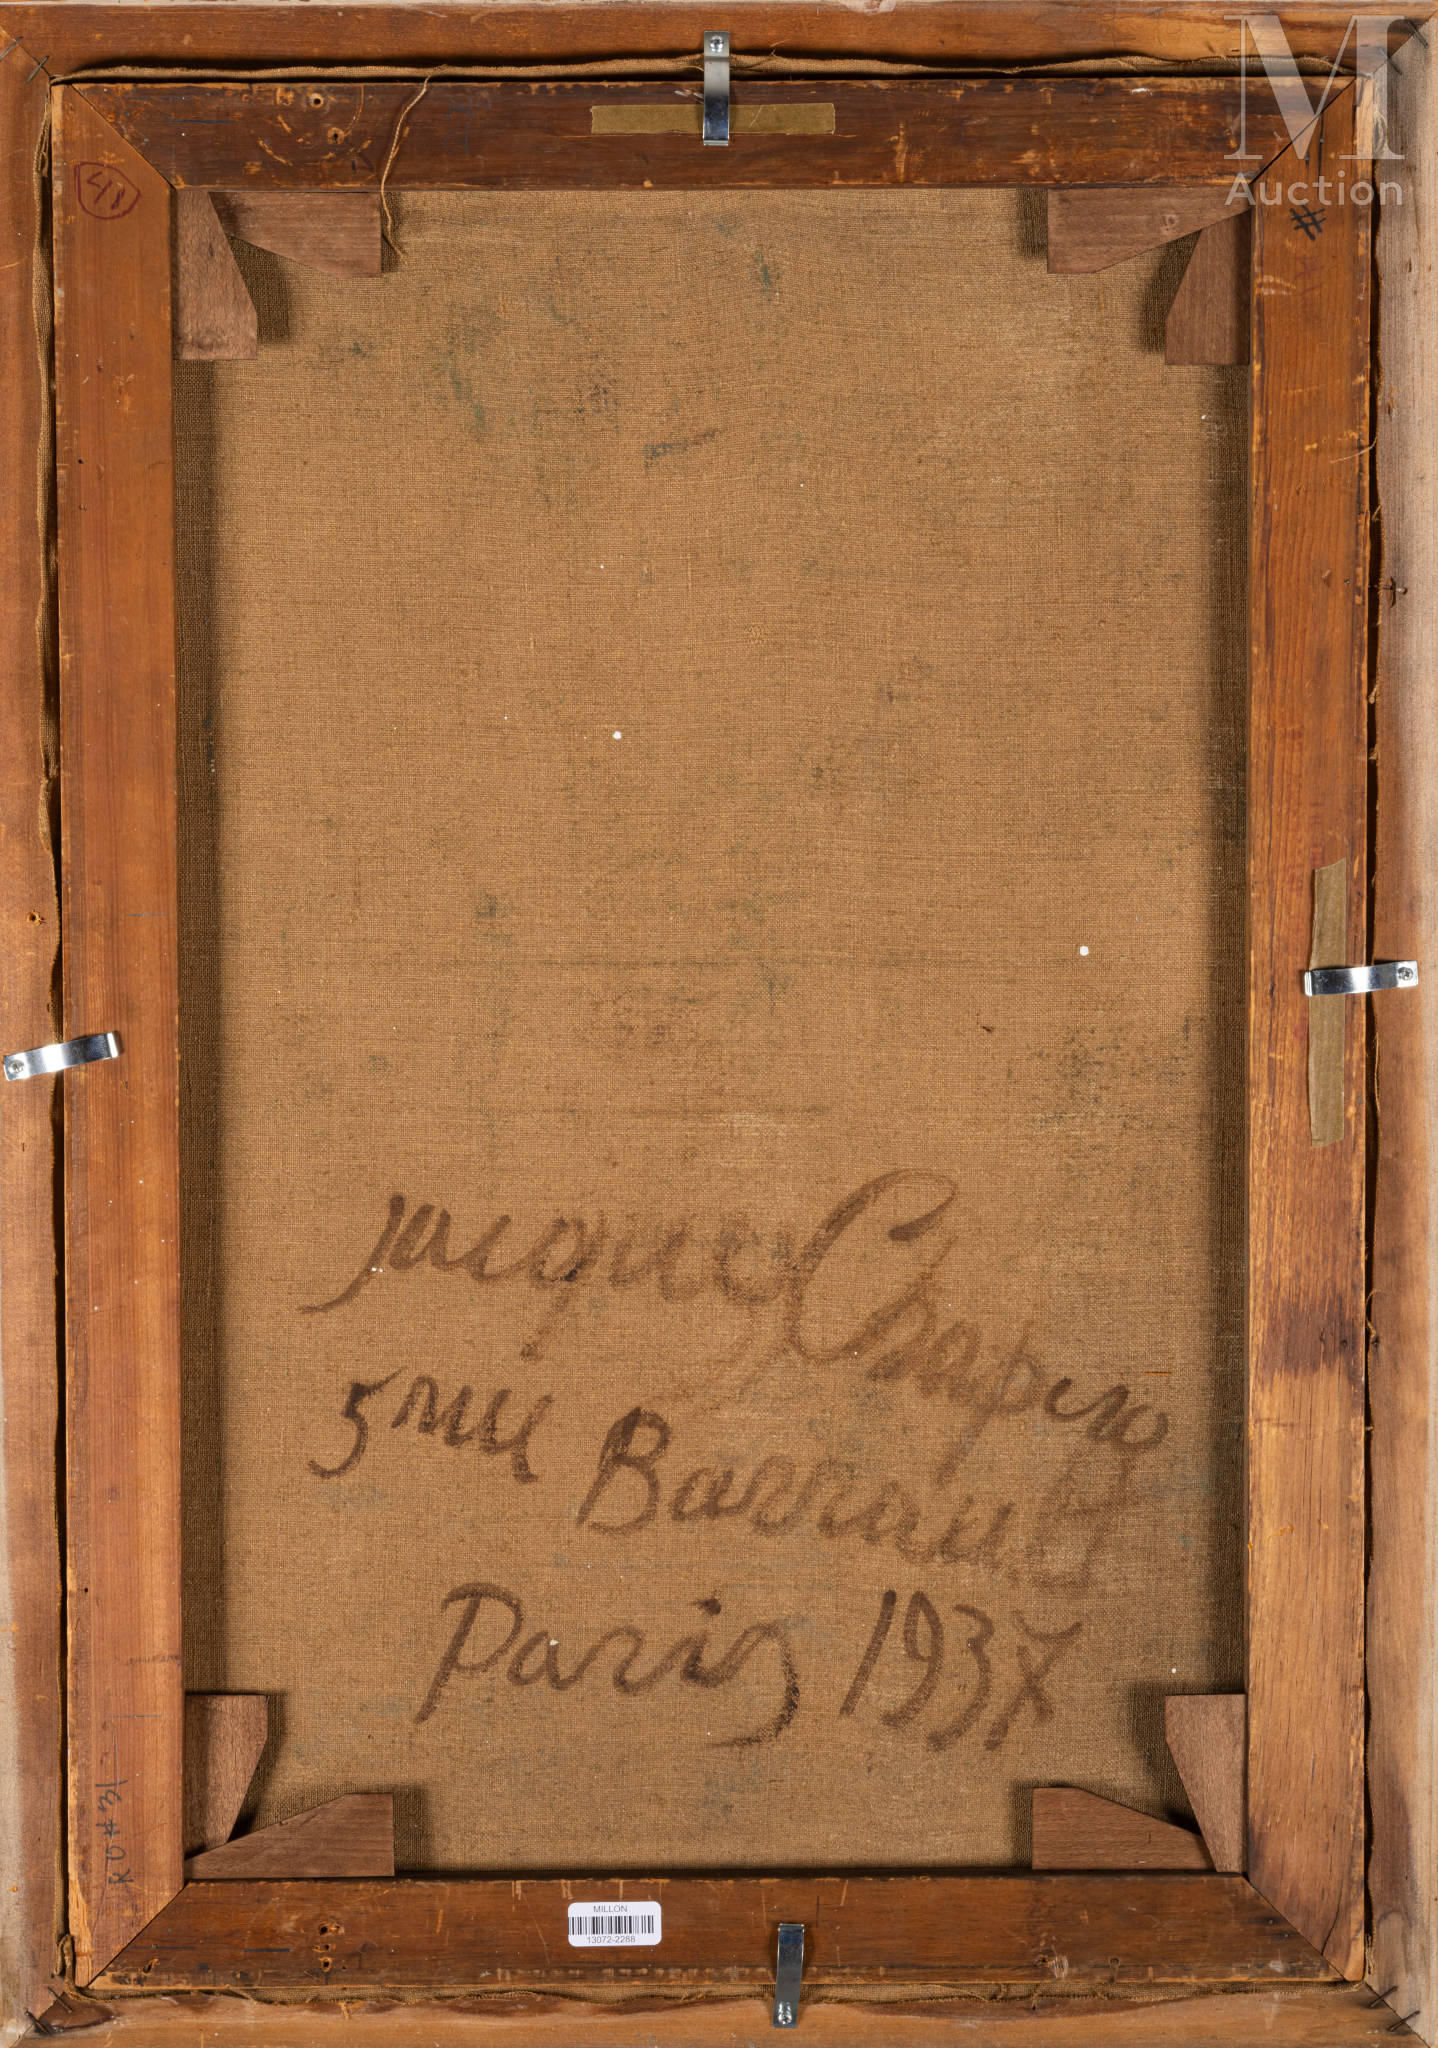 M
Auction
41
#
Jacques Chapiro
5 rue Barrault
Paris 1937
MILLON
13072-2288